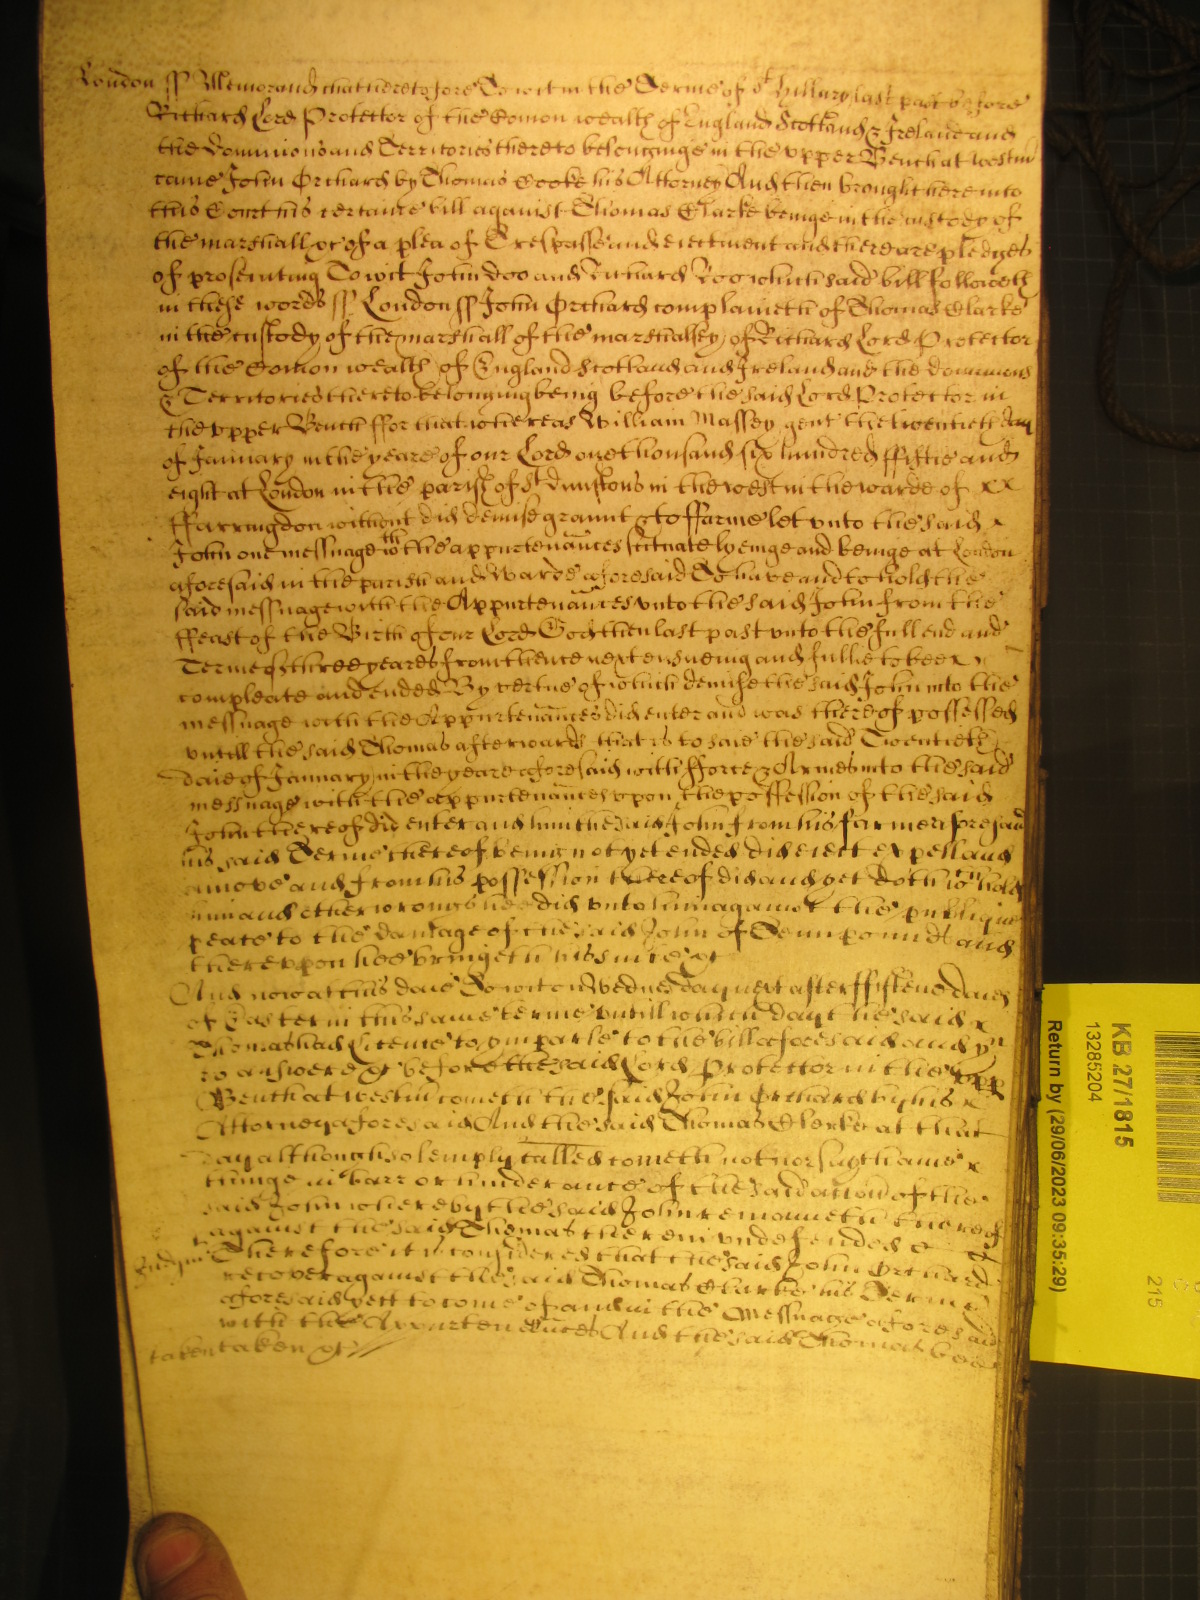 London ss Memorand that heretofore To wit in the Terme of St Hillary last past before
Richard Lord Protector of the Comon wealth of England Scotland & Ireland and
the Dominions and Territories thereto belonginge in the upper Bench at Westm
came John Orchard by Thomas Cooke his Attorney And then brought here into
this Court his certaine bill against Thomas Clarke beinge in the custody of
the marshall &c of a plea of Trespasse and eiectment and there are pledges
of prosecuting To wit John Doo and Richard Roo which said bill followeth
in these words ss London ss John Orchard complaineth of Thomas Clarke
in the custody of the marshall of the marshalsey of Richard Lord Protector
of the Comon wealth of England Scotland and Ireland and the Dominions
& Territories thereto belonging being before the said Lord Protector in
the upper Bench ffor that whereas William Massey gent the twentieth day
of January in the yeare of our Lord one thousand six hundred ffiftie and
eight at London in the parish of St Dunstons in the west in the warde of x x
ffarringdon without did demise graunt & to ffarme let unto the said x
John one messuage wth the appurtenances scituate lyeinge and beinge at London
aforesaid in the parish and Warde aforesaid To have and to hold the
said messuage with the Appurtenances unto the said John from the
ffeast of the Birth of our Lord God then last past unto the full end and
Terme of three yeares from thence next ensueing and fullie to bee x
compleate and ended By vertue of which demise the said John into the
messuage with the Appurtenances did enter and was thereof possessed
untill the said Thomas afterwards that is to saie the said Twentieth
daie of January in the yeare aforesaid with fforce & Armes into the said
messuage with the appurtenances upon the possession of the said
John thereof did enter and him the said John from his farme aforesaid
his said Terme thereof being not yet ended did eiect expell and
amove and from his possession thereof did and yet doth wth hold
him and other wrongs hee did unto him against the publique
peace to the damage of the said John of Tenn pounds and
thereupon hee bringeth his suite &c
And now at this daie To wit on Wednesday next after ffifteene daies
of Easter in this same terme untill which day the said x
Thomas had License to imparle to the bill aforesaid and yn
to answere &c before the said Lord Protector in the upp
Bench at westm cometh the said John Orchard by his x
Attorney aforesaid And the said Thomas Clerke at that
day although solemply called cometh not nor sayth anie x
thinge in barr or hinderance of the said action of the
said John whereby the said John remaineth thereof
against the said Thomas therein undefended &c
Iudgm Therefore it is considered that the said John Orchard
recover against the said Thomas Clarke his Terme
aforesaid yett to come of and in the Messuage aforesaid
with the Appurtenances And the said Thomas bee
taken taken &c
KB 27/1815
13285204
Return by (29/06/2023 09:35:29)
215